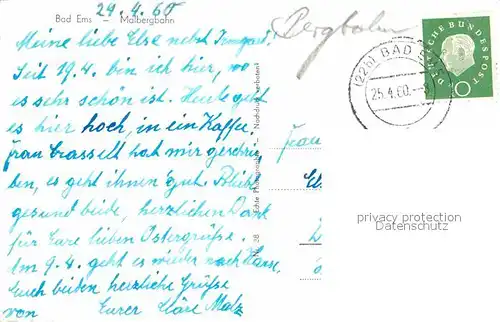 24.4.60
Bad Ems - Malbergbahn
Meine liebe Else nebst Irmgard!
Seit 19.4. bin ich hier, wo
es sehr schön ist. Heute geht
es hier hoch, in ein Kaffee.
Frau Crasselt hat mir geschrie-
ben, es geht ihnen gut. Bleibt
gesund beide, herzlichen Dank
für Eure lieben Ostergrüße.
Am 9.4. geht es wieder nach Hause.
Euch beiden herzliche Grüße
von Eurer Cläre Malz
Bergbahn
(22b) BAD
25.4.60.-8
DEUTSCHE BUNDESPOST
10
Nr. 38
Echte Photographie - Nachdruck verboten!
Frau
privacy protection
Datenschutz